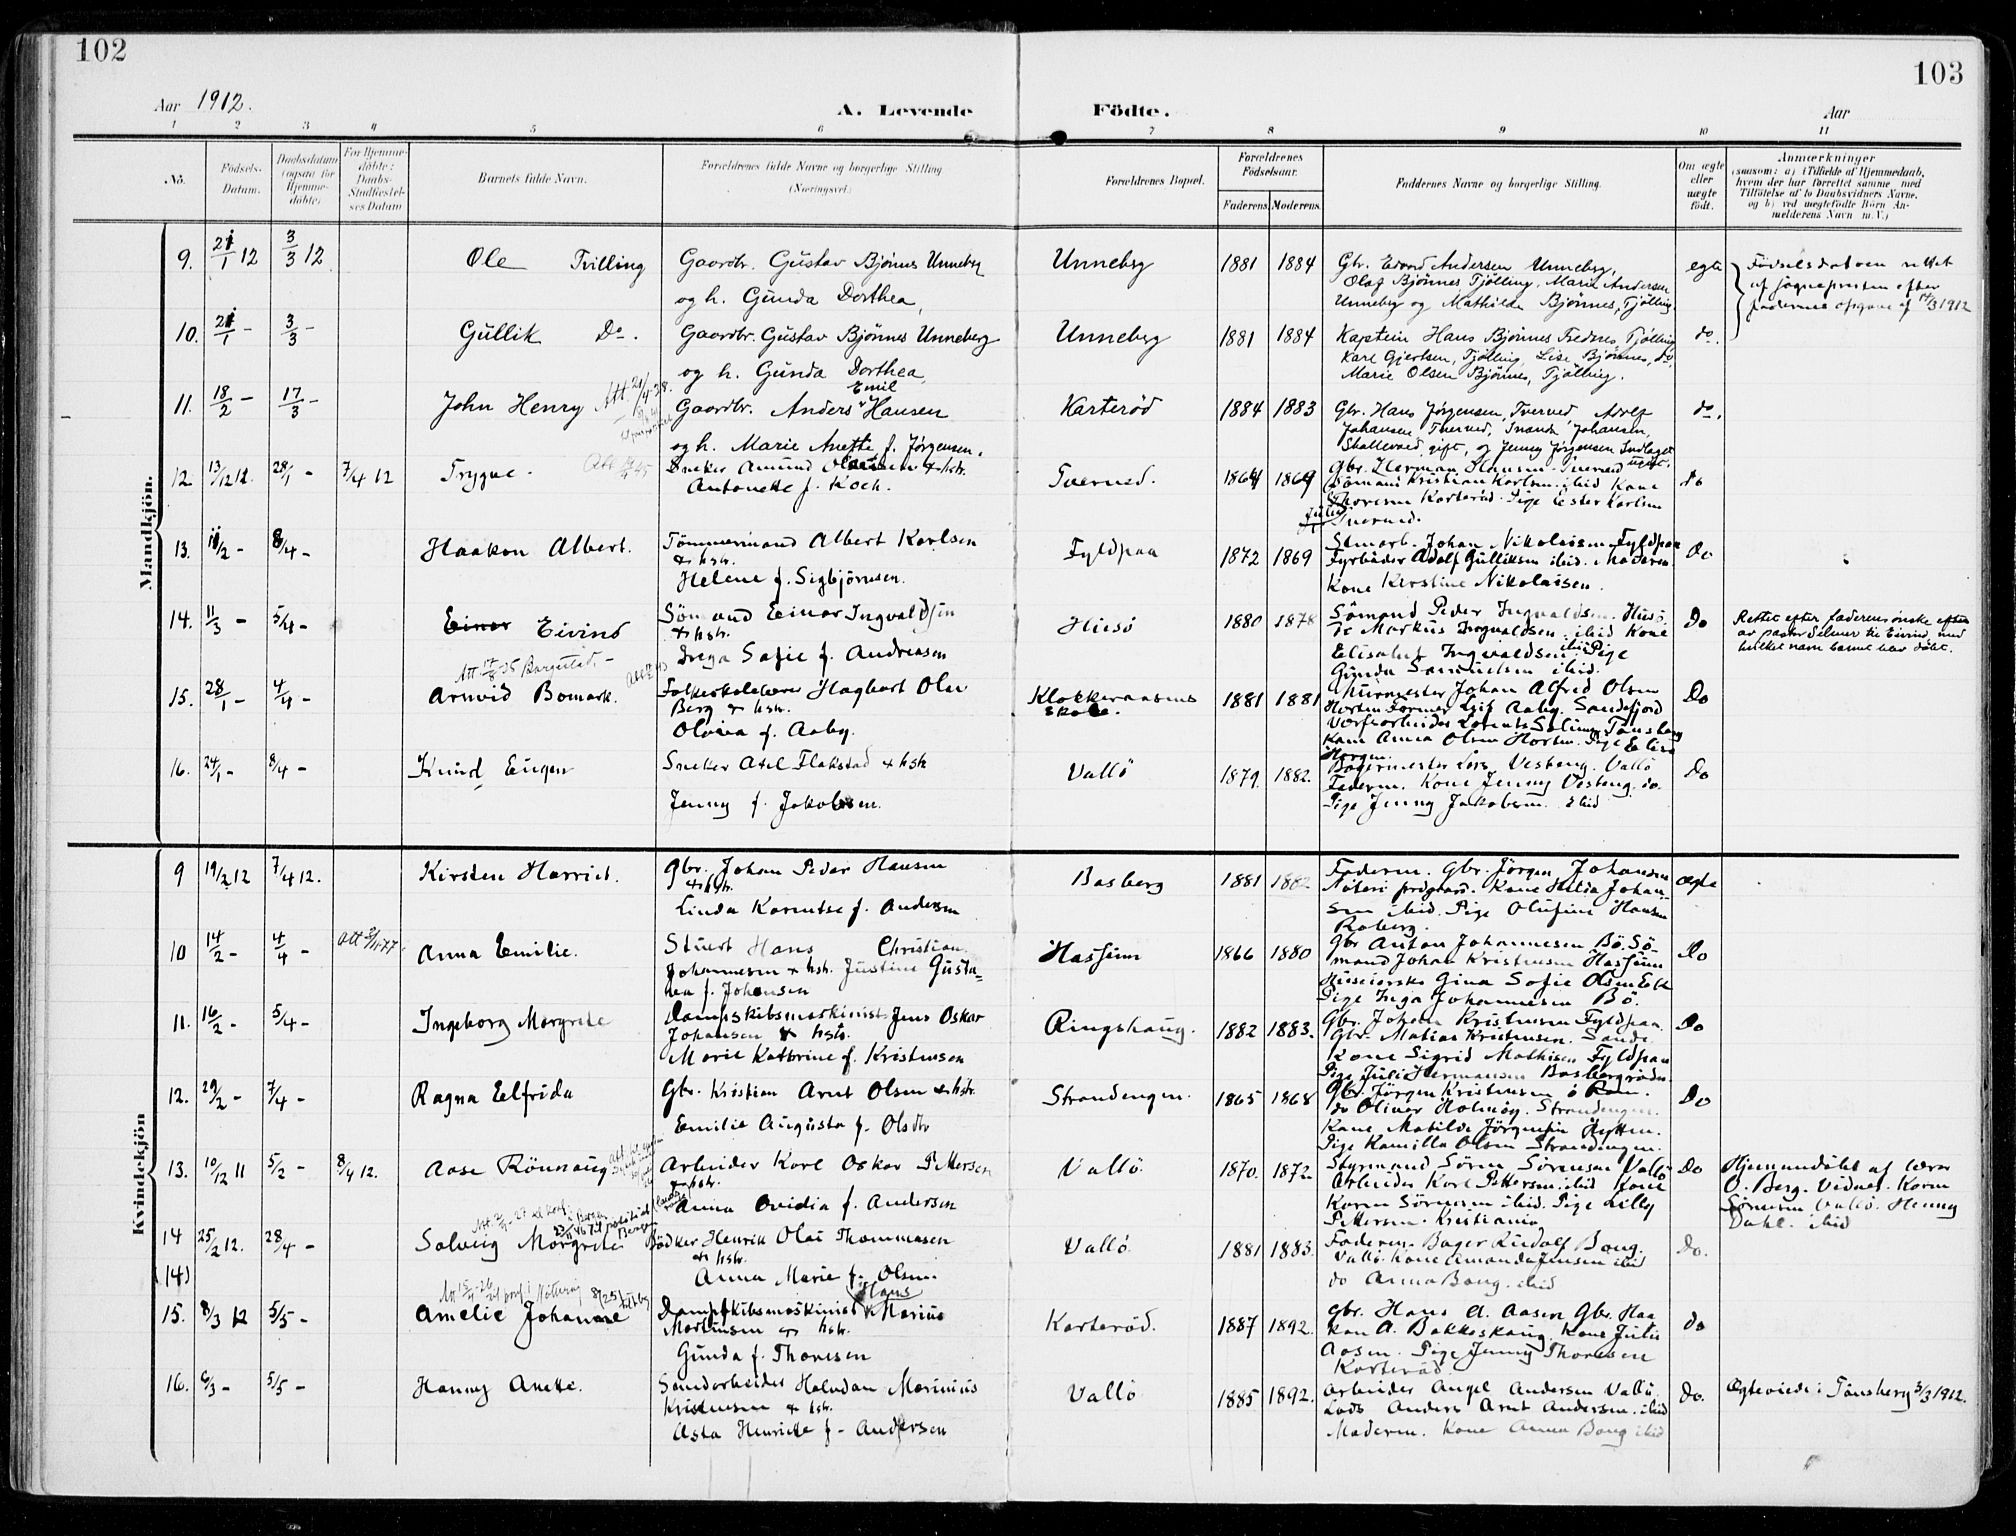 102
103
Aar 1912.
A. Levende
Födte.
Aar
1 2 3 4 5 6 7 8 9 10 11
No.
Födsels-Datum.
Daabsdatum (ogsaa for Hjemme-döbte)
For Hjemme-döbte: Daabs-Stadfæstel-ses Datum
Barnets fulde Navn.
Forældrenes fulde Navne og borgerlige Stilling (Næringsvei.)
Forældrenes Bopæl.
Forældrenes Födselsaar.
Faderens. Moderens.
Faddernes Navne og borgerlige Stilling.
Om ægte eller uægte födt.
Anmærkninger
(saasom: a) i Tilfælde af Hjemmedaab, hvem der har forrettet samme med Tilföielse af to Daabsvidners Navne, og b) ved uægtefödte Börn An-melderens Navn m. V.)
Mandkjön.
9. 21/1 12 3/3 12 Ole Tvilling Gaardbr. Gustav Bjönnes Unneberg
og h. Gunda Dorthea,
Unneberg 1881 1884 Gbr. Edvard Andersen Unneberg,
Olaf Bjönnes Tjölling, Marie Andersen
Unneberg og Mathilde Bjönnes, Tjölling.
egte
Födselsdatoen rettet
af sognepresten efter
faderens opgave af 14/3 1912
10. 21/1 - 3/3 - Gullik Do. Gaardbr. Gustav Bjönnes Unneberg
og h. Gunda Dorthea,
Unneberg 1881 1884 Kaptein Hans Bjönnes Tjölling
Karl Gjertsen, Tjölling, Lise Bjönnes, do,
Marie Olsen Bjönnes, Tjölling.
do.
11. 18/2 - 17/3 - John Henry Att. 21/4-28. Gaardbr. Anders Emil Hansen
og h. Marie Anette f. Jörgensen.
Karteröd 1884 1883 Gbr. Hans Jörgensen, Tverved, Adolf
Johansen Tverved, Johansen,
Skallevold, gift, og Jenny Jörgensen
ugift.
do.
12 13/12 12. 28/1 - 7/4 12 Trygve. Sneker Amund Olausen & hstr.
Antonette f. Koch.
Tverved. 1864 1869 Gbr. Herman Hansen Tverved
Sömand Kristian Karlsen ibid Kone
Thoresen Karteröd. Pige Ester Karlsen
Tverved.
do
13. 11/2 - 8/4 - Haakon Albert. Tömmermand Albert Karlsen
& hstr.
Helene f. Sigbjörnsen.
Fyldpaa 1872 1869 Johan Nikolaisen Fyldpaa
Fyrböder Adolf Gulliksen ibid. Moderen.
Kone Kirstine Nikolaisen.
Do
14. 11/3 - 5/4 - Einar Eivind Sömand Einar Ingvaldsen
& hstr.
Sofie f. Andreasen
Husö 1880 1878 Sömand Peder Ingvaldsen. Husö.
Do Markus Ingvaldsen. ibid Kone
Elisabet Ingvaldsen ibid Pige
Gunda Samuelsen ibid.
Do
Rettet efter faderens önske efter
av pastor Selmer til Eivind, med
hvilket navn barnet blev döbt.
15. 28/1 - 4/4 - Arnvid Bomark. Folkeskolelærer Hagbart Olai
Berg & hstr.
Olvina f. Aaby.
Klokkeraasens
skole.
1881 1881 Murmester Johan Alfred Olsen
Horten Former Leif Aaby. Sandefjord
Tönsberg
Kone Anna Olsen Horten. Pige Elise
Do
16. 24/1 - 8/4 - Knud Eugen Sneker Axel Flakstad & hstr
Jenny f. Jakobsen.
Vallö 1879. 1882. Bagermester Lars Vesteng. Vallö
Faderen. Kone Jenny Vesteng. do.
Pige Jenny Jakobsen. ibid
Do
Kvindekjön
9 19/2 12 7/4 12. Kirsten Harriet. Gbr. Johan Peder Hansen
& hstr.
Linda Karentse f. Andersen
Basberg 1881 1882 Faderen. Gbr. Jörgen Johansen
Nöteri prgjaard. Kone Hilda Johan-
sen ibid. Pige Olufine Hansen
Roberg.
Ægte
10 14/2 - 4/4 - Anna Emilie. Stuert Hans Christian
Johannesen & hstr. Justine Gusta-
va f. Johansen
Hassum 1866 1880 Gbr Anton Johannesen Bö. Sö-
mand Johan Kristensen Hassum
Gina Sofie Olsen Eik
Pige Inga Johannesen Bö.
Do
11. 16/2 - 5/4 - Ingeborg Margrete Dampskibsmaskinist Jens Oskar
Johansen & hstr.
Marie Katrine f. Kristensen
Ringshaug. 1882 1883. Gbr. Johan Kristensen Fyldpaa.
Gbr. Matias Kristensen. Sande.
Kone Sigrid Mathisen Fyldpaa
Pige Juli Hermansen Basbergröd.
Do
12. 29/2 - 7/4 - Ragna Elfrida Gbr. Kristian Arnt Olsen & hstr.
Emilie Augusta f. Olsdtr
Strandengen. 1865 1868 Gbr. Jörgen Kristensen ö Ram.
do Oliver Holmög. Strandengen.
Kone Matilde Jörgensen Hytten.
Pige Kamilla Olsen Strandengen.
Do
13. 10/12 11 5/2 - 8/4 12. Aase Rönnaug Arbeider Karl Oskar Pettersen
& hstr.
Anna Ovidia f. Andersen
Vallö. 1870. 1872. Styrmand Sören Sörensen Vallö
Arbeider Karl Pettersen. ibid Kone
Karen Sörensen ibid. Pige Lilly
Pettersen. Kristiania
Do
Hjemmedöbt af lærer
O. Berg. Vidner. Karen
Sörensen Vallö. Henny
Dahl. ibid
14 25/2 12. 28/4 - Solveig Margrete Bödker Henrik Olai Thommesen
& hstr.
Anna Marie f. Olsen.
Vallö. 1881 1883. Faderen. Bager Rudolf Bang.
Vallö. Kone Amanda Jensen ibid
do Anna Bang. ibid
Do.
(14)
15. 8/3 12 5/5 - Amelie Johanne Dampskibsmaskinist Hans Marius
Martinsen & hstr.
Gunda f. Thoresen
Karteröd. 1887 1892. Gbr. Hans A. Aasen Gbr. Haa-
kon A. Bakkeskaug. Kone Julie
Aasen. Pige Jenny Thoresen
Karteröd
do
16. 6/3 - 5/5 - Hanny Anette. Halvdan Marinius
Kristensen & hstr.
Asta Henriette f. Andersen
Vallö 1885 1892. Arbeider Angel Andersen Vallö.
Lods Anders Arnt Andersen. ibid
Moderen. Kone Anna Bang ibid
Do.
Ægteviede i Tönsberg 3/3 1912.